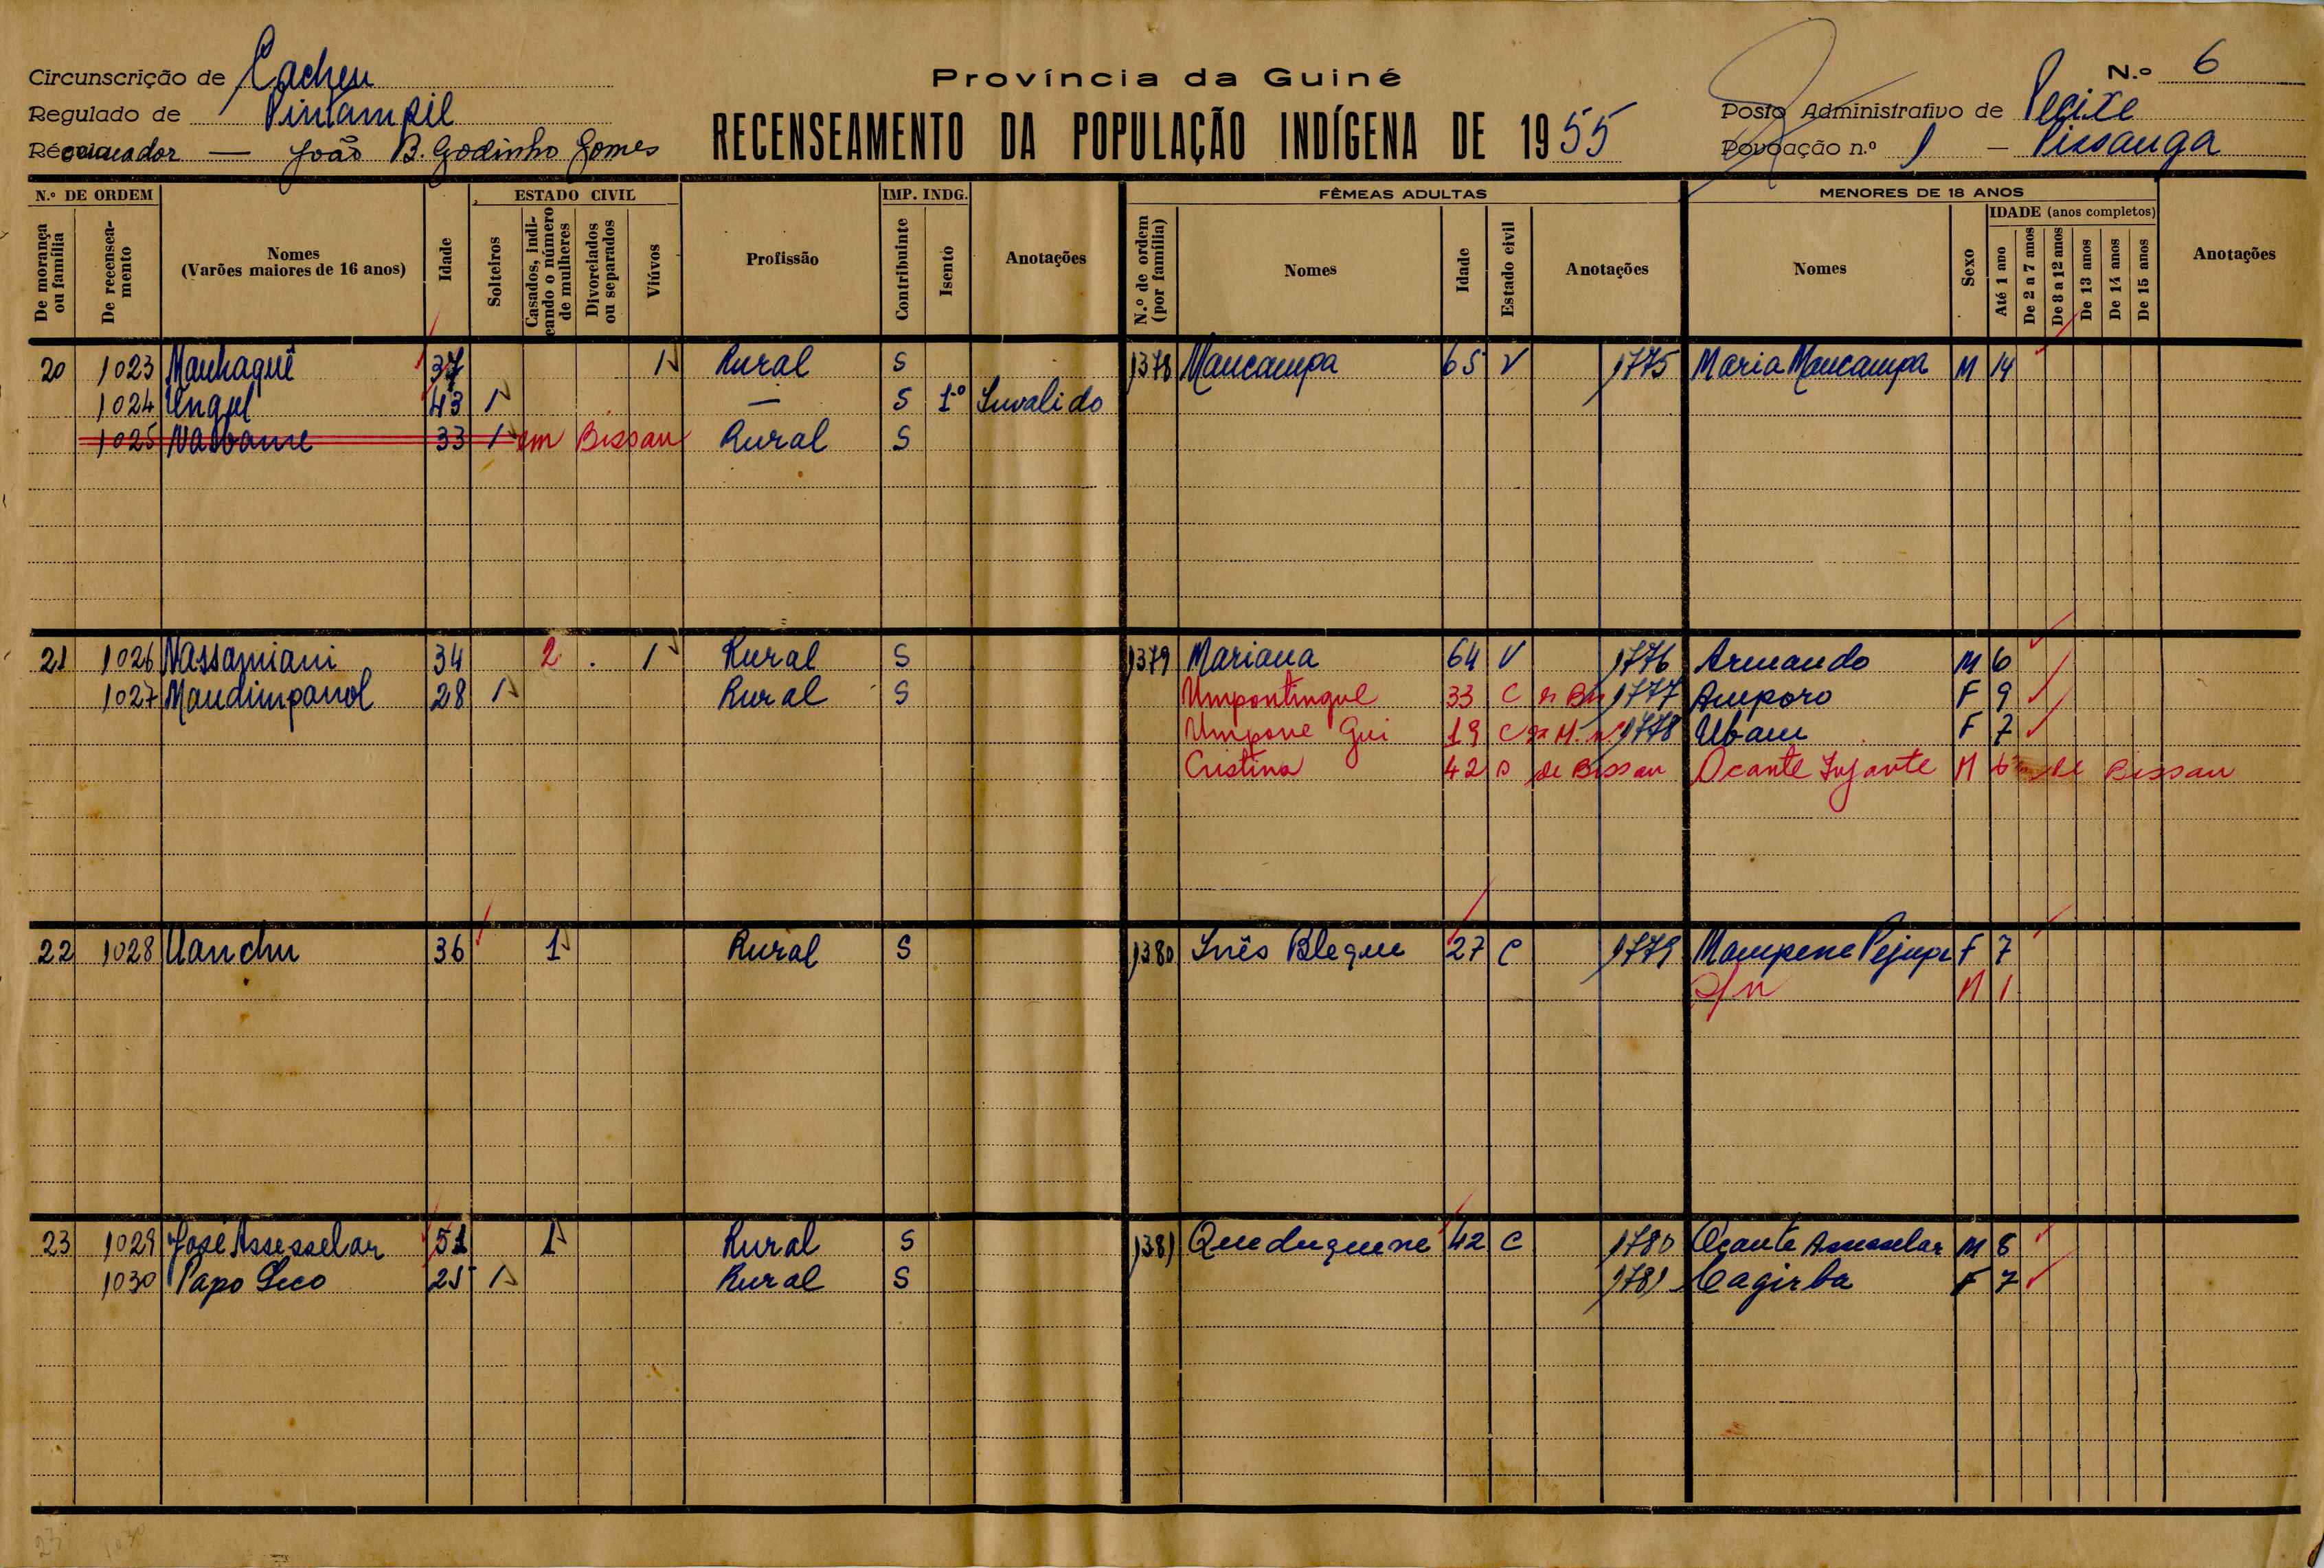 Província da Guiné
N.º 6
Circunscrição de Cacheu
Regulado de Pintampil
Recenseador — João B. Godinho Gomes
RECENSEAMENTO DA POPULAÇÃO INDÍGENA DE 1955
Posto Administrativo de Pecixe
Povoação n.º 1 — Pissanga
N.º DE ORDEM
De morança ou família
De recenseamento
Nomes
(Varões maiores de 16 anos)
Idade
ESTADO CIVIL
Solteiros
Casados, indicando o número de mulheres
Divorciados ou separados
Viúvos
Profissão
IMP. INDG.
Contribuinte
Isento
Anotações
FÊMEAS ADULTAS
N.º de ordem (por família)
Nomes
Idade
Estado civil
Anotações
MENORES DE 18 ANOS
Nomes
Sexo
IDADE (anos completos)
Até 1 ano
De 2 a 7 anos
De 8 a 12 anos
De 13 anos
De 14 anos
De 15 anos
Anotações
20 1023 Manhaquê 37 1 Rural S 1378 Mancampa 65 V 1775 Maria Mancampa M 14
1024 Ungul 43 1 — S 1º Invalido
1025 Nabbame 33 1 em Bissau Rural S
21 1026 Nassamiani 34 2 1 Rural S 1379 Mariana 64 V 1776 Armando M 6
1027 Maudimpanol 28 1 Rural S Umpontingue 33 C 1777 Amporo F 9
Umpone Gui 19 C 1778 Ubam F 7
Cristina 42 S de Bissau Ocante Infante M de Bissau
22 1028 Uanchu 36 1 Rural S 1380 Inês Bleque 27 C 1779 Mampene Pejupe F 7
S/n M 1
23 1029 José Assesselar 51 1 Rural S 1381 Queduquene 42 C 1780 Ocante Assesselar M 8
1030 Papo Seco 25 1 Rural S 1781 Cagirba F 7
23 1030